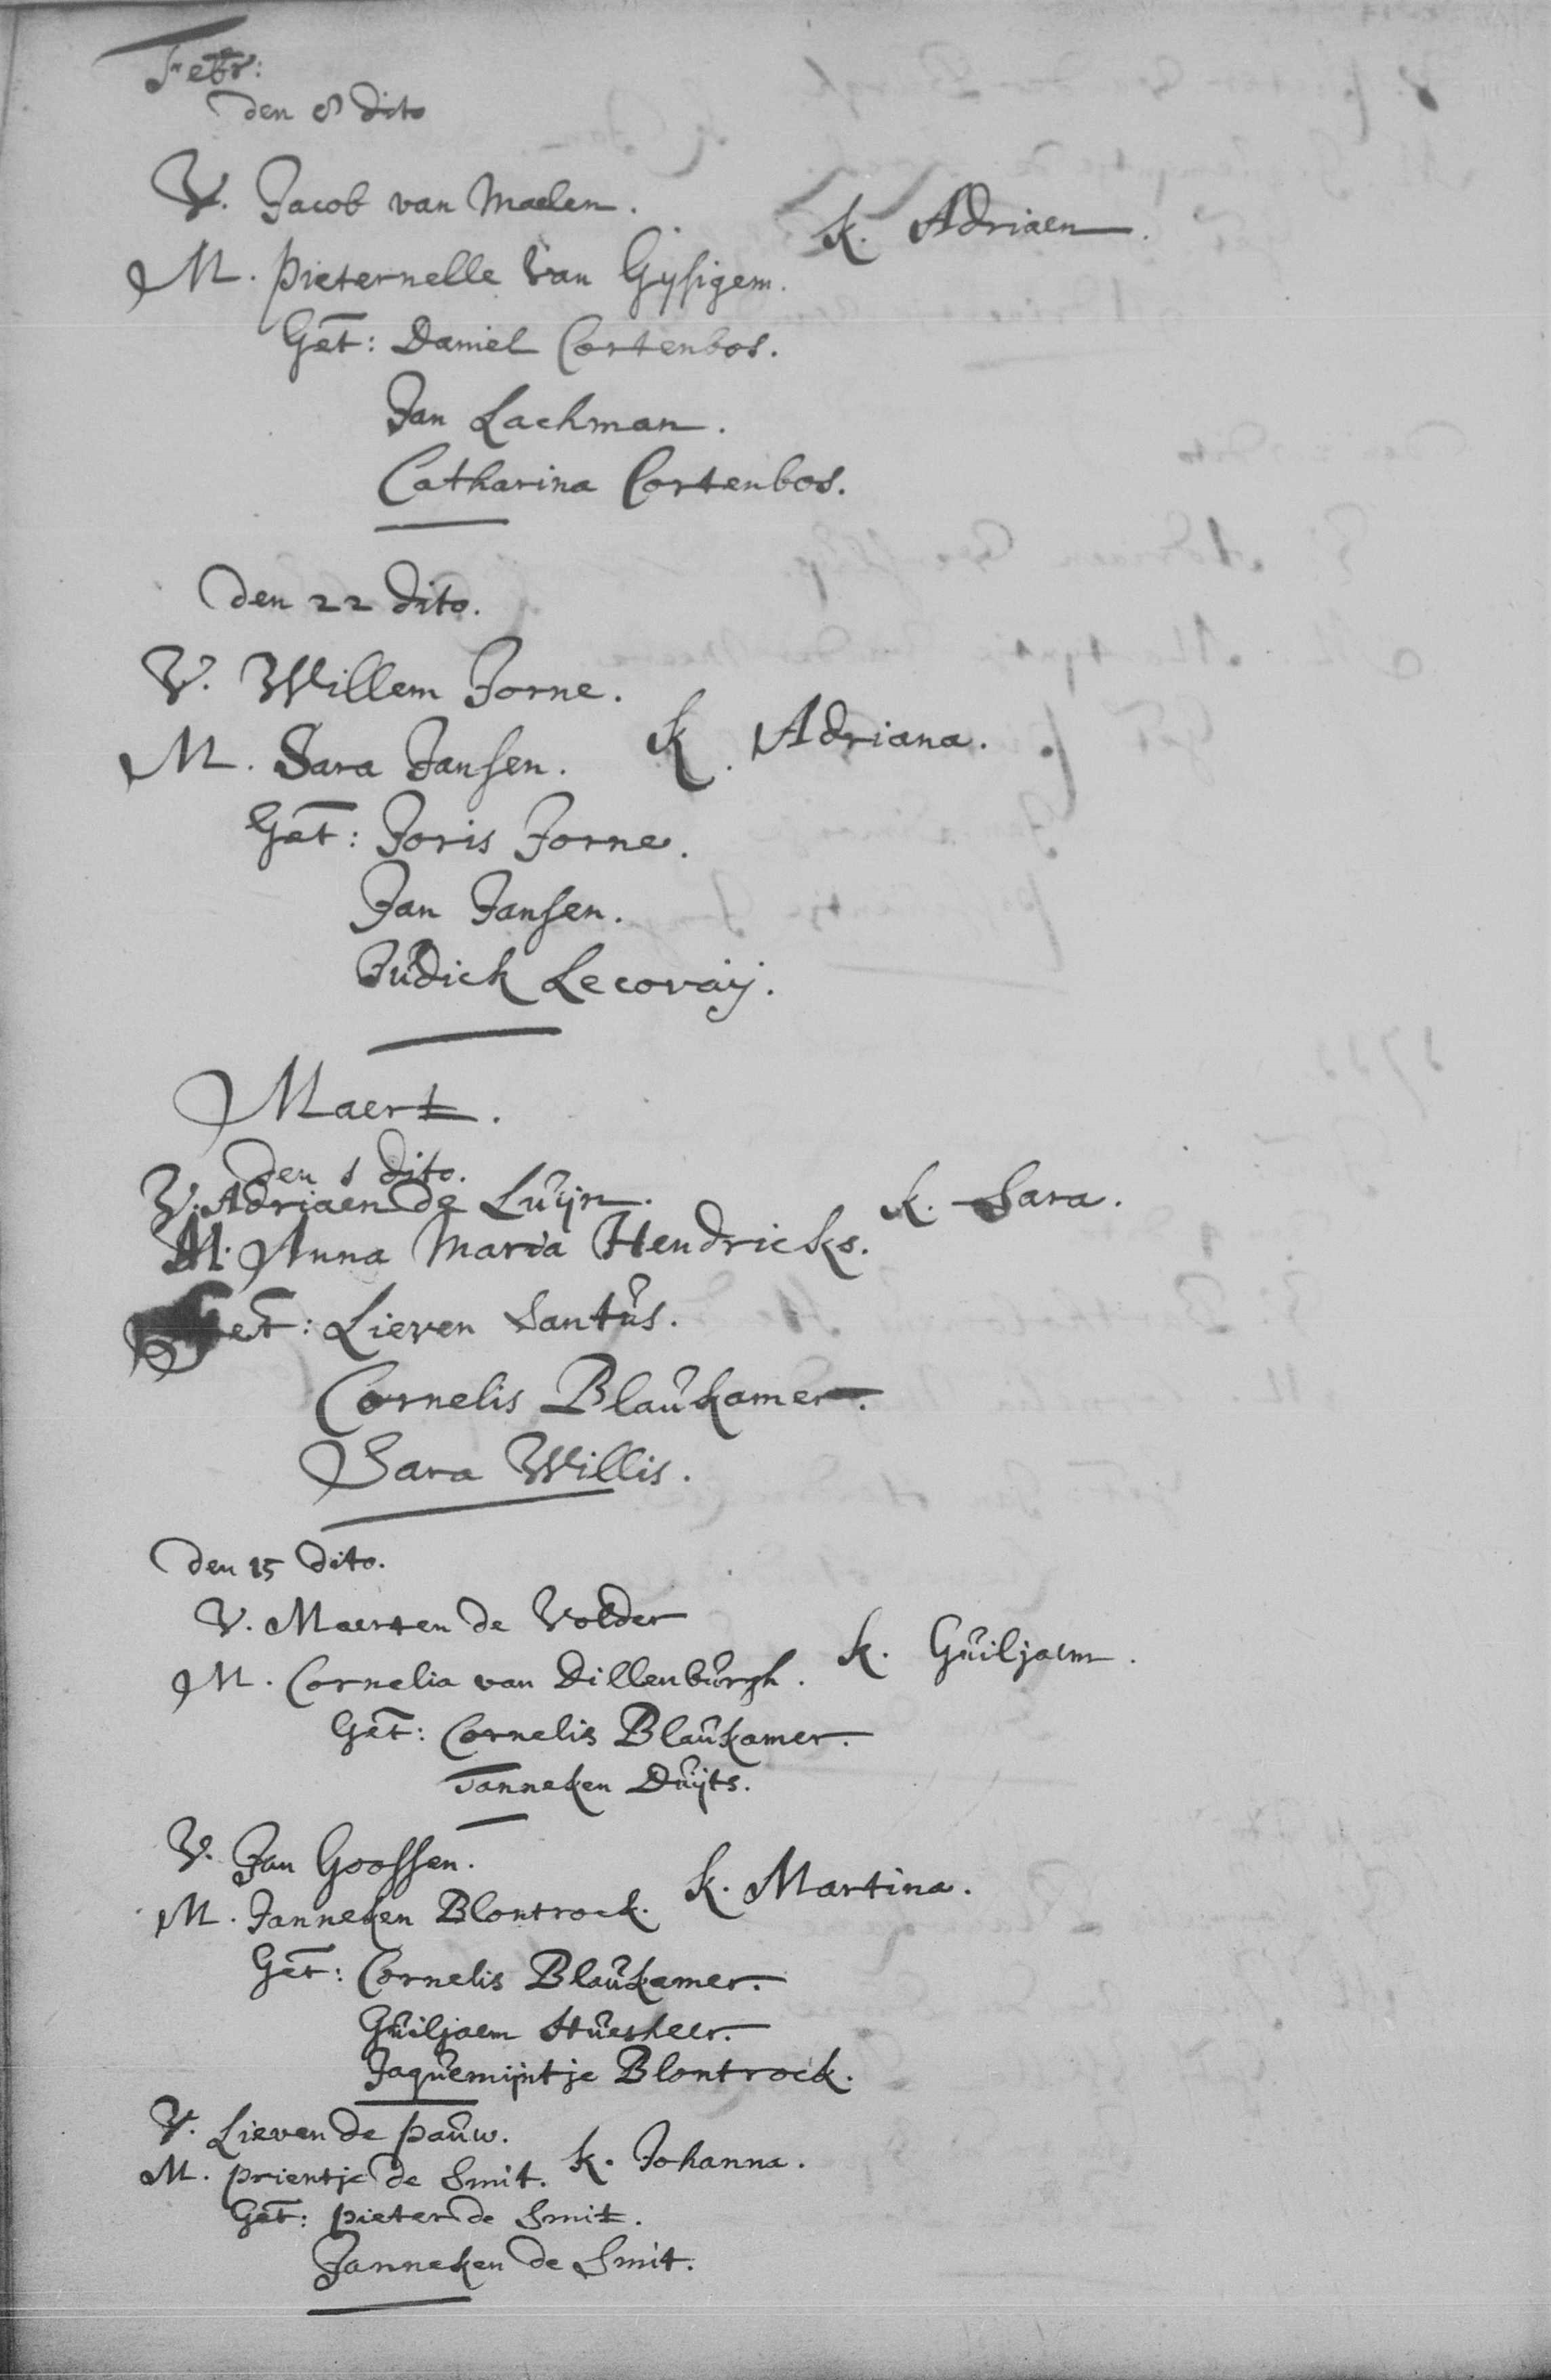 Febr:
den 8 dito
V. Jacob van Maelen.
K. Adriaen.
M. pieternelle van Gijsigem.
Get: Daniel Cortenbos.
Jan Lachman.
Catharina Cortenbos.
den 22 dito.
V. Willem Jorne.
K. Adriana.
M. Sara Jansen.
Get: Joris Jorne.
Jan Jansen.
Judick Lecovaij.
Maert.
den 1 dito.
V. Adriaen de Luijn.
K. Sara.
M. Anna Maria Hendricks.
Get: Lieven Santus.
Cornelis Blaukamer.
Sara Willis.
den 15 dito.
V. Maerten de Volder
K. Guiljaem.
M. Cornelia van Dillenburgh.
Get: Cornelis Blaukamer.
Tanneken Duijts.
V. Jan Goossen.
K. Martina.
M. Janneken Blontrock.
Get: Cornelis Blaukamer.
Guiljaem Huesheer.
Jaquemijntje Blontrock.
V. Lieven de pauw.
K. Johanna.
M. prientje de Smit.
Get: pieter de Smit.
Janneken de Smit.